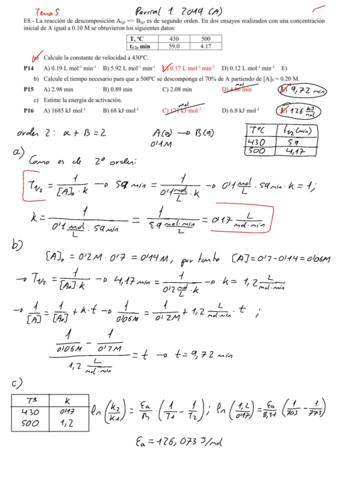 Tema 5
Parcial 1 2019 (A)
E8.- La reacción de descomposición A(g) => B(g) es de segundo orden. En dos ensayos realizados con una concentración
inicial de A igual a 0.10 M se obtuvieron los siguientes datos:
T, ºC 430 500
t1/2, min 59.0 4.17
a) Calcule la constante de velocidad a 430ºC.
P14 A) 0.19 L mol⁻¹ min⁻¹ B) 5.92 L mol⁻¹ min⁻¹ C) 0.17 L mol⁻¹ min⁻¹ D) 0.12 L mol⁻¹ min⁻¹ E)
b) Calcule el tiempo necesario para que a 500ºC se descomponga el 70% de A partiendo de [A]₀ = 0.20 M.
P15 A) 2.98 min B) 0.89 min C) 2.08 min min E) 9,72 min
c) Estime la energía de activación.
P16 A) 1685 kJ mol⁻¹ B) 68 kJ mol⁻¹ C) kJ mol⁻¹ D) 6.8 kJ mol⁻¹ E) 126 kJ/mol
orden 2: α + β = 2 A(g) → B(g)
0'1M
TªC t1/2 (min)
430 59
500 4,17
a)
Como es de 2º orden:
T1/2 = 1/([A]₀·k) → 59 min = 1/(0'1 mol/L · k) → 0'1 mol/L · 59 min · k = 1;
k = 1/(0'1 mol/L · 59 min) = 1/(5'9 mol·min/L) = 0'17 L/(mol·min)
b)
[A]₀ = 0'2M · 0'7 = 0'14M, por tanto [A] = 0'2 - 0'14 = 0'06M
→ T1/2 = 1/([A₀]·k) → 4,17 min = 1/(0'2 mol/L · k) → k = 1,2 L/(mol·min)
→ 1/[A] = 1/[A₀] + k·t → 1/0'06M = 1/0'2M + 1,2 L/(mol·min) · t ;
(1/0'06M - 1/0'2M)/(1,2 L/(mol·min)) = t → t = 9,72 min
c)
Tª k
430 0'17
500 1,2
ln(k₂/k₁) = Ea/R · (1/T₁ - 1/T₂); ln(1,2/0'17) = Ea/8,31 · (1/703 - 1/773)
Ea = 126,073 J/mol